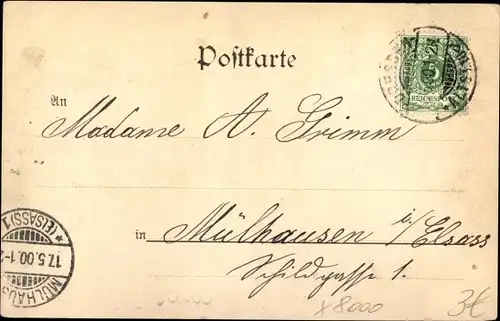 Postkarte
An
Madame A. Grimm
in Mülhausen i/Elsass
Schildgasse 1.
5
REICHSPOST
DRESDEN
* (ELSASS) 1
17.5.00.1-2
MÜLHAUS
x8000
3€